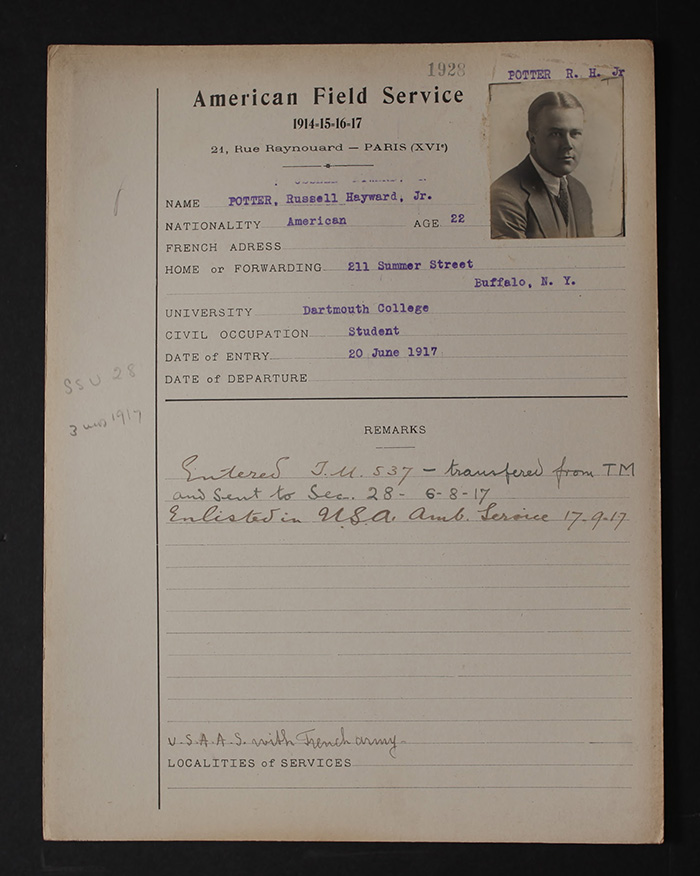 1928
POTTER R. H. Jr
American Field Service
1914-15-16-17
21, Rue Raynouard — PARIS (XVIe)
NAME POTTER, Russell Hayward, Jr.
NATIONALITY American AGE 22
FRENCH ADRESS
HOME or FORWARDING 211 Summer Street
Buffalo, N. Y.
UNIVERSITY Dartmouth College
CIVIL OCCUPATION Student
DATE of ENTRY 20 June 1917
DATE of DEPARTURE
SSU 28
3 mos 1917
REMARKS
Entered T.M. 537 - transfered from TM
and sent to Sec. 28 - 6-8-17
Enlisted in U.S.A. Amb. Service 17-9-17
U.S.A.A.S. with French army-
LOCALITIES of SERVICES